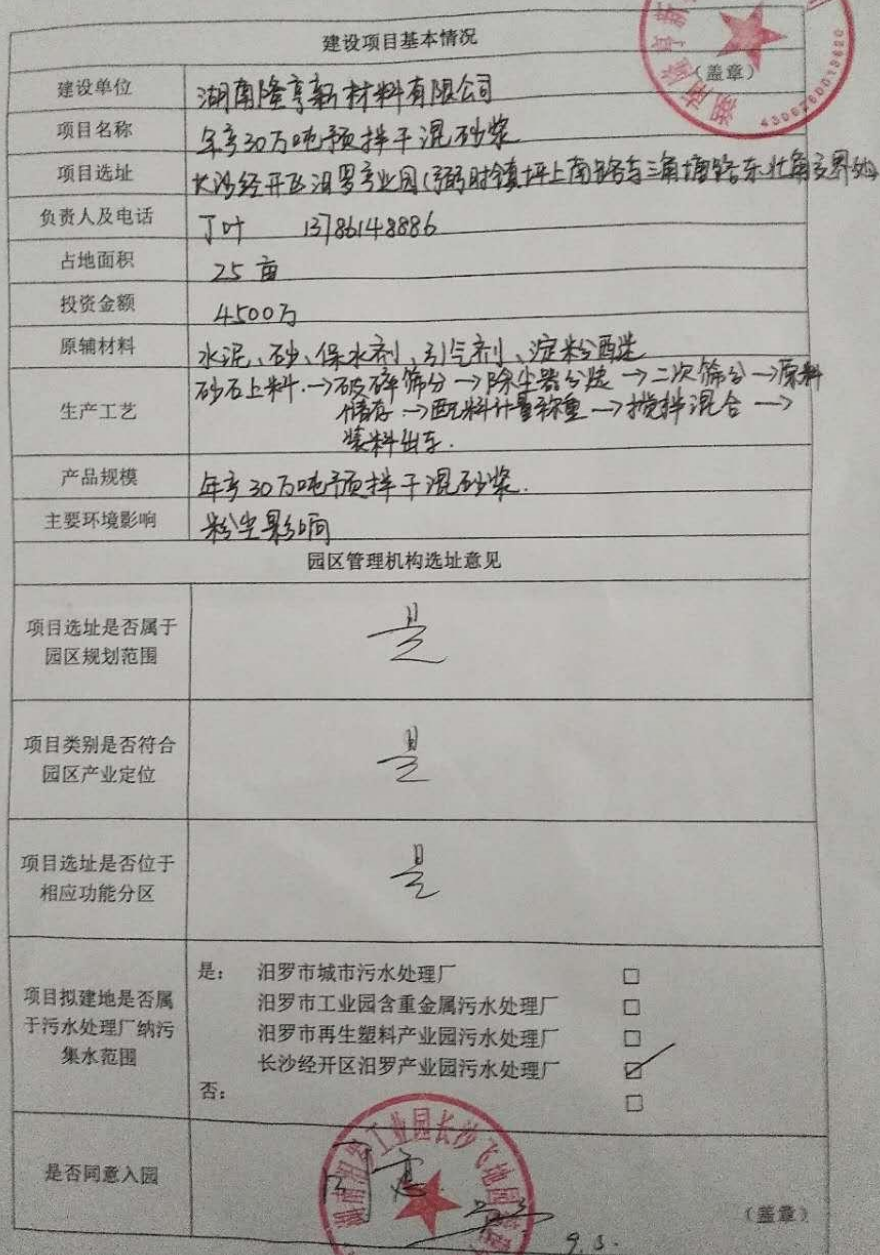 建设项目基本情况
建设单位 湖南隆享新材料有限公司 (盖章)
4306260013620
项目名称 年产30万吨预拌干混砂浆
项目选址 长沙经开区汨罗产业园(弼时镇坪上南路与三角塘路东北角交界处
负责人及电话 丁叶 13786148886
占地面积 25亩
投资金额 4500万
原辅材料 水泥、砂、保水剂、引气剂、淀粉醚
生产工艺 砂石上料.→破碎筛分→除尘器分离→二次筛分→原料
储存→配料计量称重→搅拌混合→
装料出车.
产品规模 年产30万吨预拌干混砂浆.
主要环境影响 粉尘影响
园区管理机构选址意见
项目选址是否属于
园区规划范围
是
项目类别是否符合
园区产业定位
是
项目选址是否位于
相应功能分区
是
项目拟建地是否属
于污水处理厂纳污
集水范围
是: 汨罗市城市污水处理厂 □
汨罗市工业园含重金属污水处理厂 □
汨罗市再生塑料产业园污水处理厂 □
长沙经开区汨罗产业园污水处理厂 ☑
否: □
是否同意入园
湖南汨罗工业园长沙飞地园
同意
9.3.
(盖章)